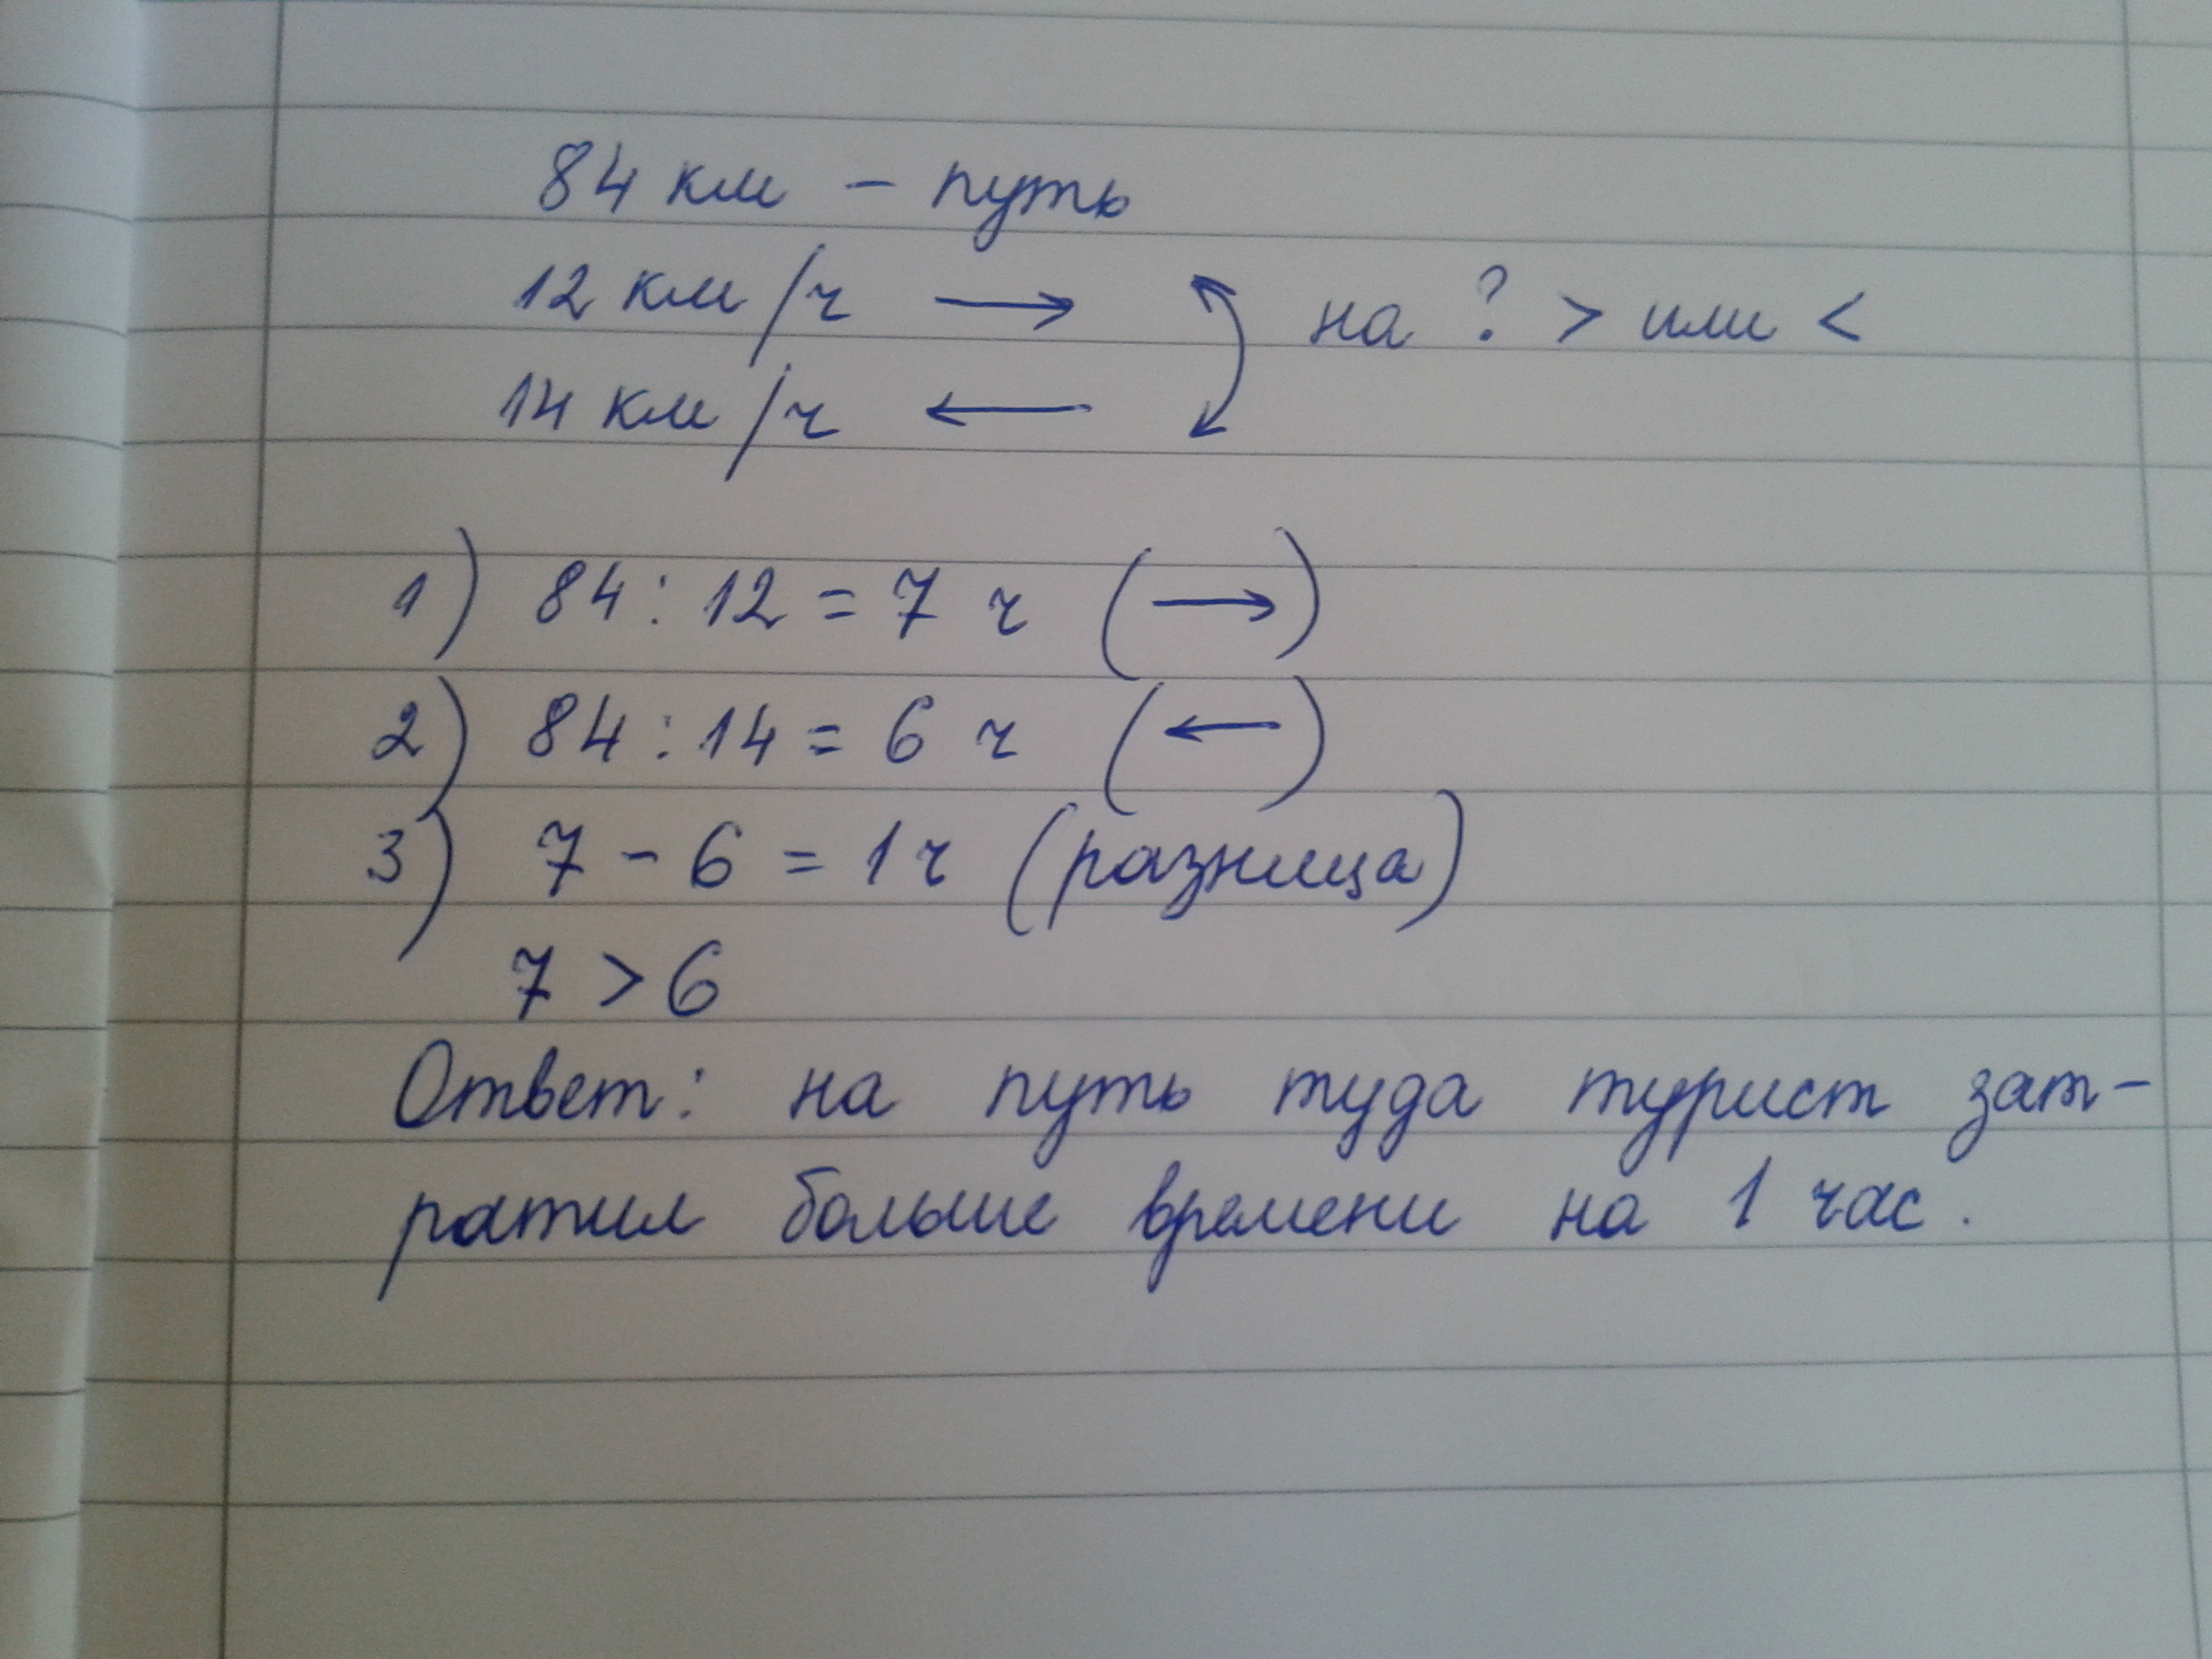 84 км – путь
12 км/ч → на ? > или <
14 км/ч ←
1) 84 : 12 = 7 ч (→)
2) 84 : 14 = 6 ч (←)
3) 7 - 6 = 1 ч (разница)
7 > 6
Ответ: на путь туда турист зат-
ратил больше времени на 1 час.